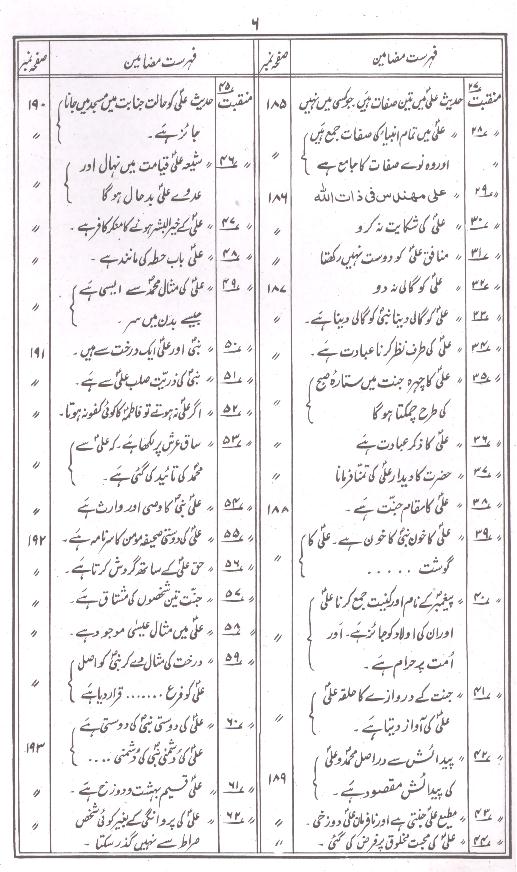 ۶
فہرست مضامین صفحہ نمبر
منقبت ۲۷ حدیث علیؑ میں تین صفات ہیں جو کسی میں نہیں ۱۸۵
〃 ۲۸ 〃 علیؑ میں تمام انبیاء کی صفات جمع ہیں 〃
اور وہ نوے صفات کا جامع ہے
〃 ۲۹ 〃 علی مهندس فی ذات الله ۱۸۶
〃 ۳۰ 〃 علیؑ کی شکایت نہ کرو 〃
〃 ۳۱ 〃 منافق علیؑ کو دوست نہیں رکھتا 〃
〃 ۳۲ 〃 علیؑ کو گالی نہ دو ۱۸۷
〃 ۳۳ 〃 علیؑ کو گالی دینا نبیؐ کو گالی دینا ہے۔ 〃
〃 ۳۴ 〃 علیؑ کی طرف نظر کرنا عبادت ہے۔ 〃
〃 ۳۵ 〃 علیؑ کا چہرہ جنت میں ستارۂ صبح 〃
کی طرح چمکتا ہوگا
〃 ۳۶ 〃 علیؑ کا ذکر عبادت ہے 〃
〃 ۳۷ 〃 حضرت کا دیدار علیؑ کی تمنا فرمانا 〃
〃 ۳۸ 〃 علیؑ کا مقام جنت ہے۔ ۱۸۸
〃 ۳۹ 〃 علیؑ کا خون نبیؐ کا خون ہے۔ علیؑ کا 〃
گوشت .....
〃 ۴۰ 〃 پیغمبرؐ کے نام اور کنیت جمع کرنا علیؑ 〃
اور ان کی اولاد کو جائز ہے۔ اور
اُمت پر حرام ہے۔
〃 ۴۱ 〃 جنت کے دروازے کا حلقہ علیؑ 〃
علیؑ کی آواز دیتا ہے۔
〃 ۴۲ 〃 پیدائش سے دراصل محمدؐ و علیؑ ۱۸۹
کی پیدائش مقصود ہے۔
〃 ۴۳ 〃 مطیع علیؑ جنتی ہے اور نافرمان علیؑ دوزخی۔ 〃
〃 ۴۴ 〃 علیؑ کی محبت مخلوق پر فرض کی گئی۔ 〃
فہرست مضامین صفحہ نمبر
منقبت ۴۵ حدیث علیؑ کو حالت جنابت میں مسجد میں جانا ۱۹۰
جائز ہے۔
〃 ۴۶ 〃 شیعہ علیؑ قیامت میں نہال اور 〃
عدوے علیؑ بدحال ہوگا
〃 ۴۷ 〃 علیؑ کے خیر البشر ہونے کا منکر کافر ہے۔ 〃
〃 ۴۸ 〃 علیؑ باب حطہ کی مانند ہے۔ 〃
〃 ۴۹ 〃 علیؑ کی مثال محمدؐ سے ایسی ہے 〃
جیسے بدن میں سر۔
〃 ۵۰ 〃 نبیؐ اور علیؑ ایک درخت سے ہیں۔ ۱۹۱
〃 ۵۱ 〃 نبیؐ کی ذریت صلب علیؑ سے ہے۔ 〃
〃 ۵۲ 〃 اگر علیؑ نہ ہوتے تو فاطمہؑ کا کوئی کفو نہ ہوتا۔ 〃
〃 ۵۳ 〃 ساق عرش پر لکھا ہے۔ کہ علیؑ سے 〃
محمدؐ کی تائید کی گئی ہے۔
〃 ۵۴ 〃 علیؑ نبیؐ کا وصی اور وارث ہے 〃
〃 ۵۵ 〃 علیؑ کی دوستی صحیفہ مومن کا سرنامہ ہے۔ ۱۹۲
〃 ۵۶ 〃 حق علیؑ کے ساتھ گردش کرتا ہے۔ 〃
〃 ۵۷ 〃 جنت تین شخصوں کی مشتاق ہے۔ 〃
〃 ۵۸ 〃 علیؑ میں مثال عیسیٰؑ موجود ہے۔ 〃
〃 ۵۹ 〃 درخت کی مثال دے کر نبیؐ کو اصل 〃
علیؑ کو فرع ....... قرار دیا ہے
〃 ۶۰ 〃 علیؑ کی دوستی نبیؐ کی دوستی ہے ۱۹۳
علیؑ کی دشمنی نبیؐ کی دشمنی ....
〃 ۶۱ 〃 علیؑ قسیم بہشت و دوزخ ہے۔ 〃
〃 ۶۲ 〃 علیؑ کی پروانگی کے بغیر کوئی شخص 〃
صراط سے نہیں گذر سکتا۔